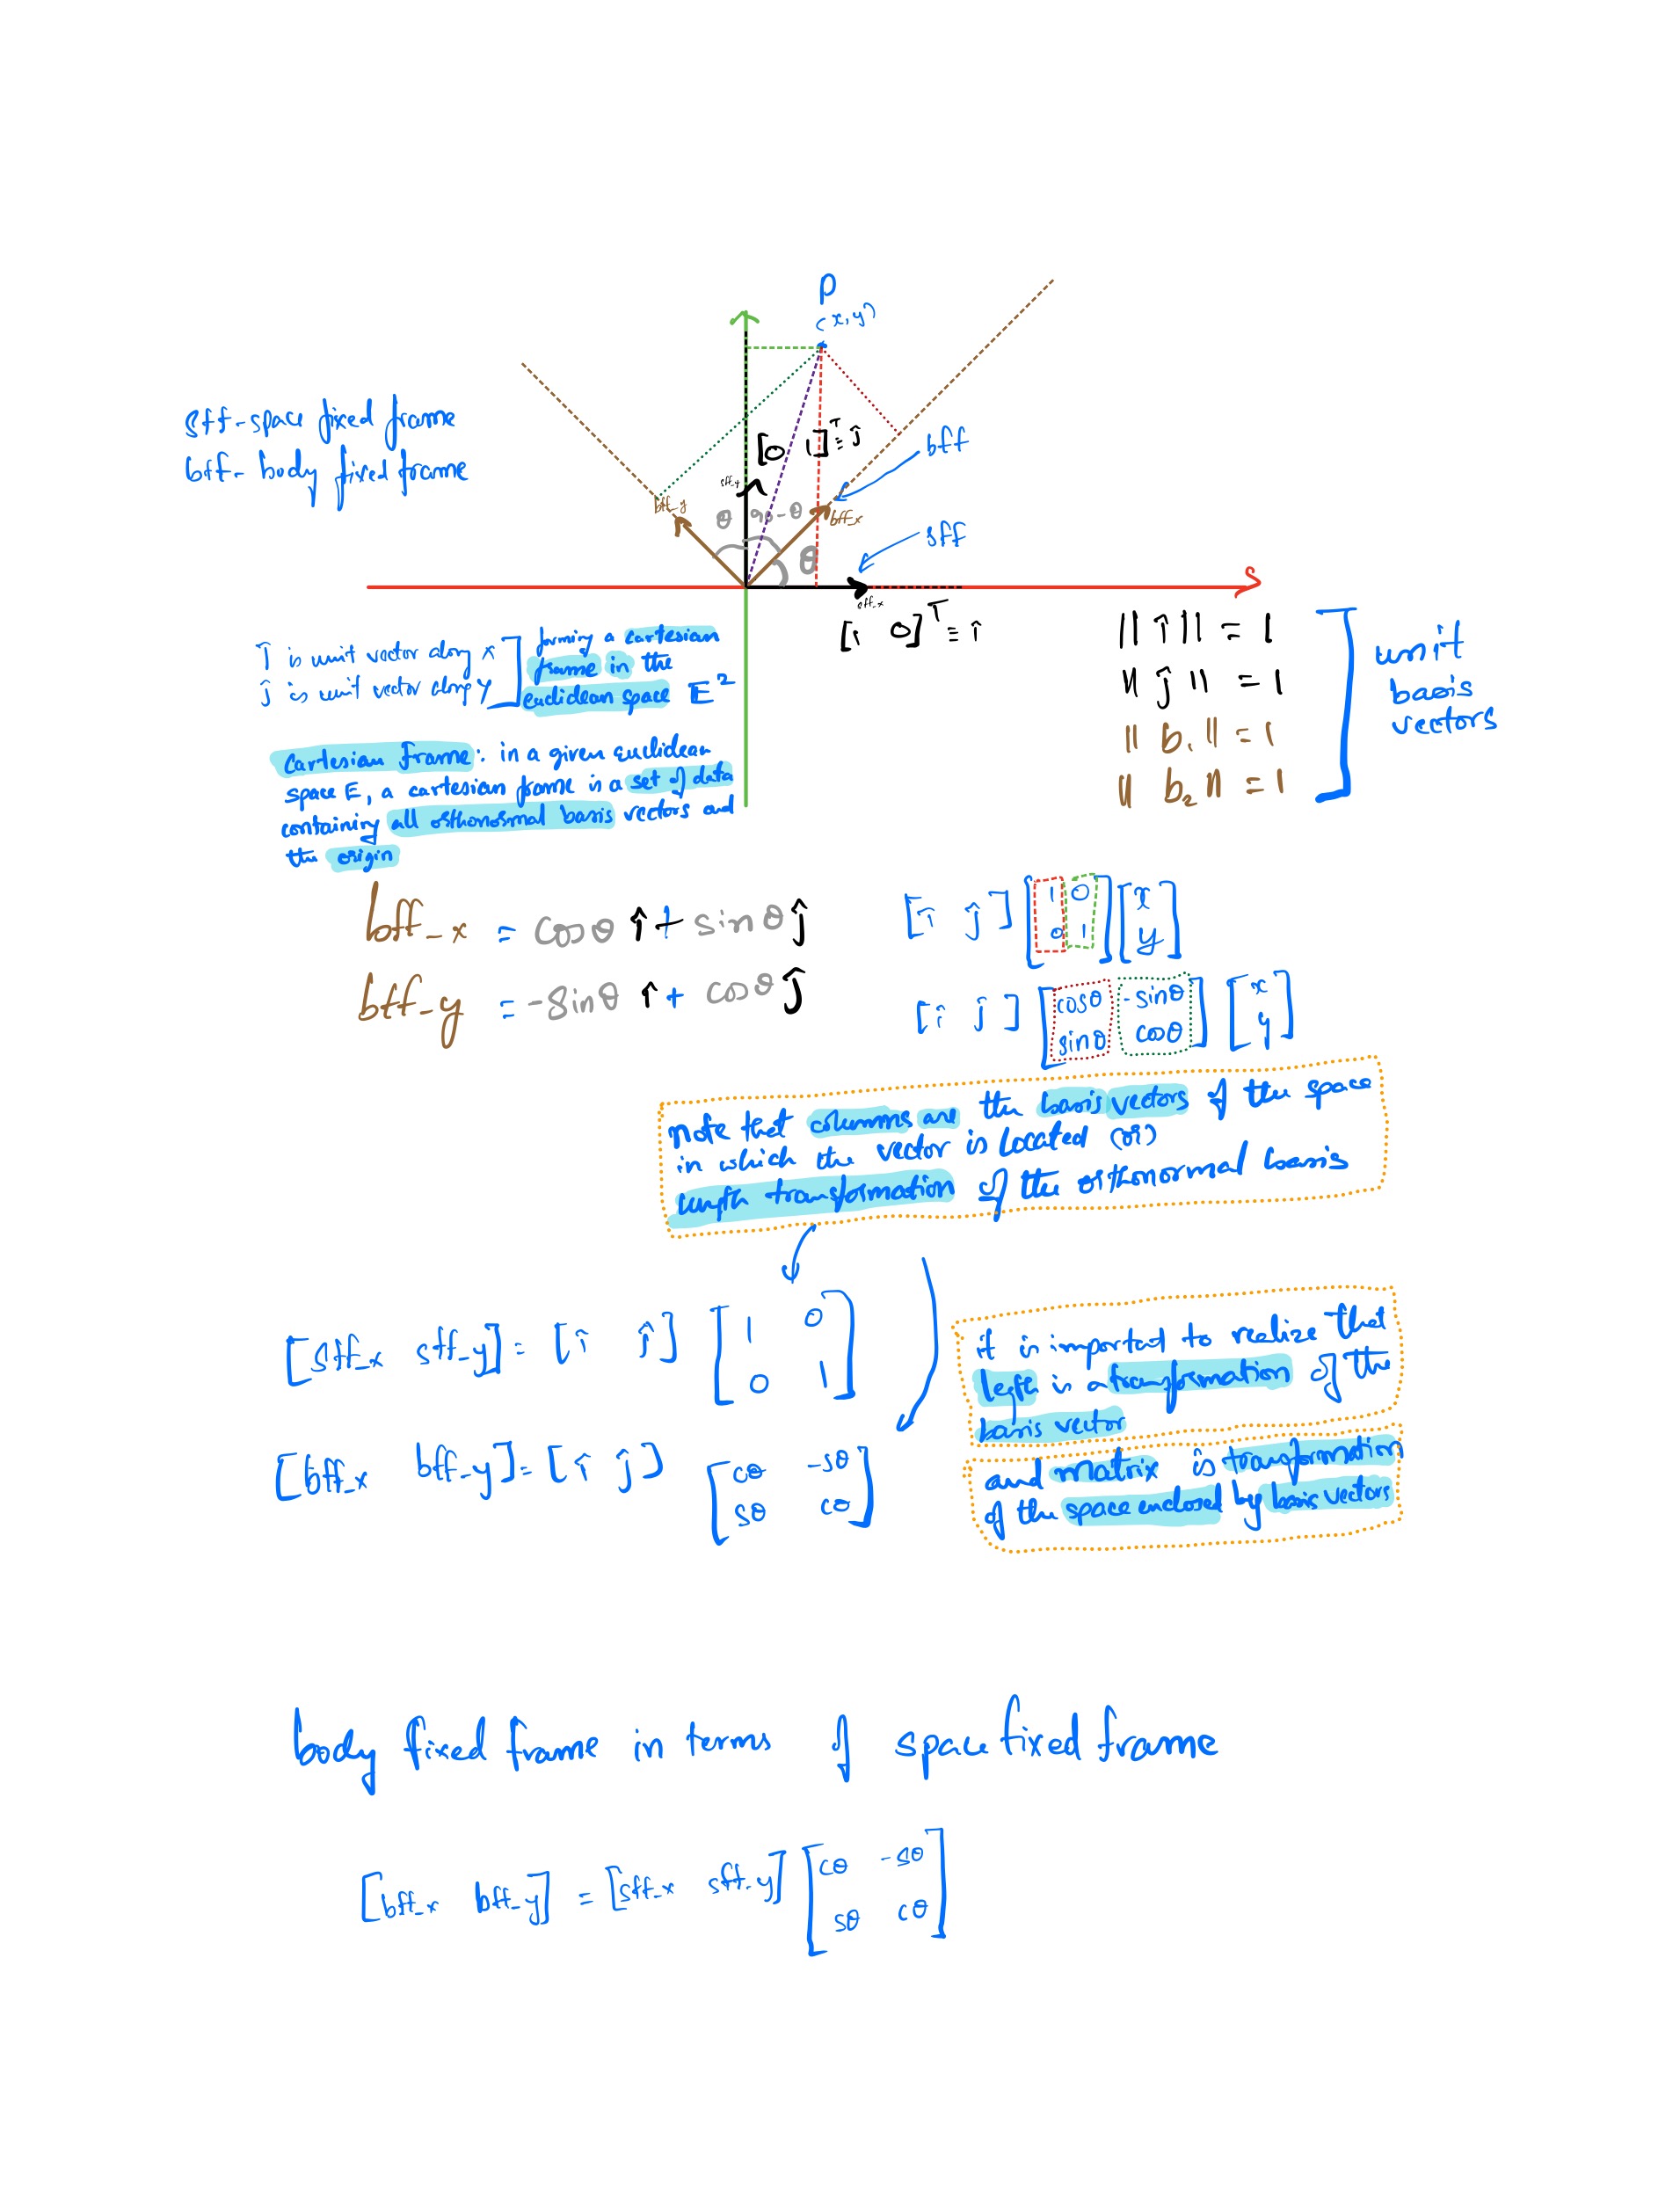 P
(x,y)
sff-space fixed frame
bff- body fixed frame
[0 1]ᵀ ≡ ĵ
bff
sff-y
bff-y
θ 90-θ
bff-x
sff
θ
sff-x
[1 0]ᵀ ≡ î
î is unit vector along x
ĵ is unit vector along y
forming a cartesian
frame in the
euclidean space E²
|| î || = 1
|| ĵ || = 1
|| b₁ || = 1
|| b₂ || = 1
unit
basis
vectors
Cartesian Frame: in a given euclidean
space E, a cartesian frame is a set of data
containing all orthonormal basis vectors and
the origin
bff-x = cosθ î + sinθ ĵ
bff-y = -sinθ î + cosθ ĵ
[î ĵ] [1 0 0 1] [x y]
[î ĵ] [cosθ -sinθ sinθ cosθ] [x y]
note that columns are the basis vectors of the space
in which the vector is located (or)
length transformation of the orthonormal basis
[sff-x sff-y] = [î ĵ] [1 0 0 1]
it is important to realize that
legth is a transformation of the
basis vector
[bff-x bff-y] = [î ĵ] [cθ -sθ sθ cθ]
and matrix is transformation
of the space enclosed by basis vectors
body fixed frame in terms of space fixed frame
[bff-x bff-y] = [sff-x sff-y] [cθ -sθ sθ cθ]